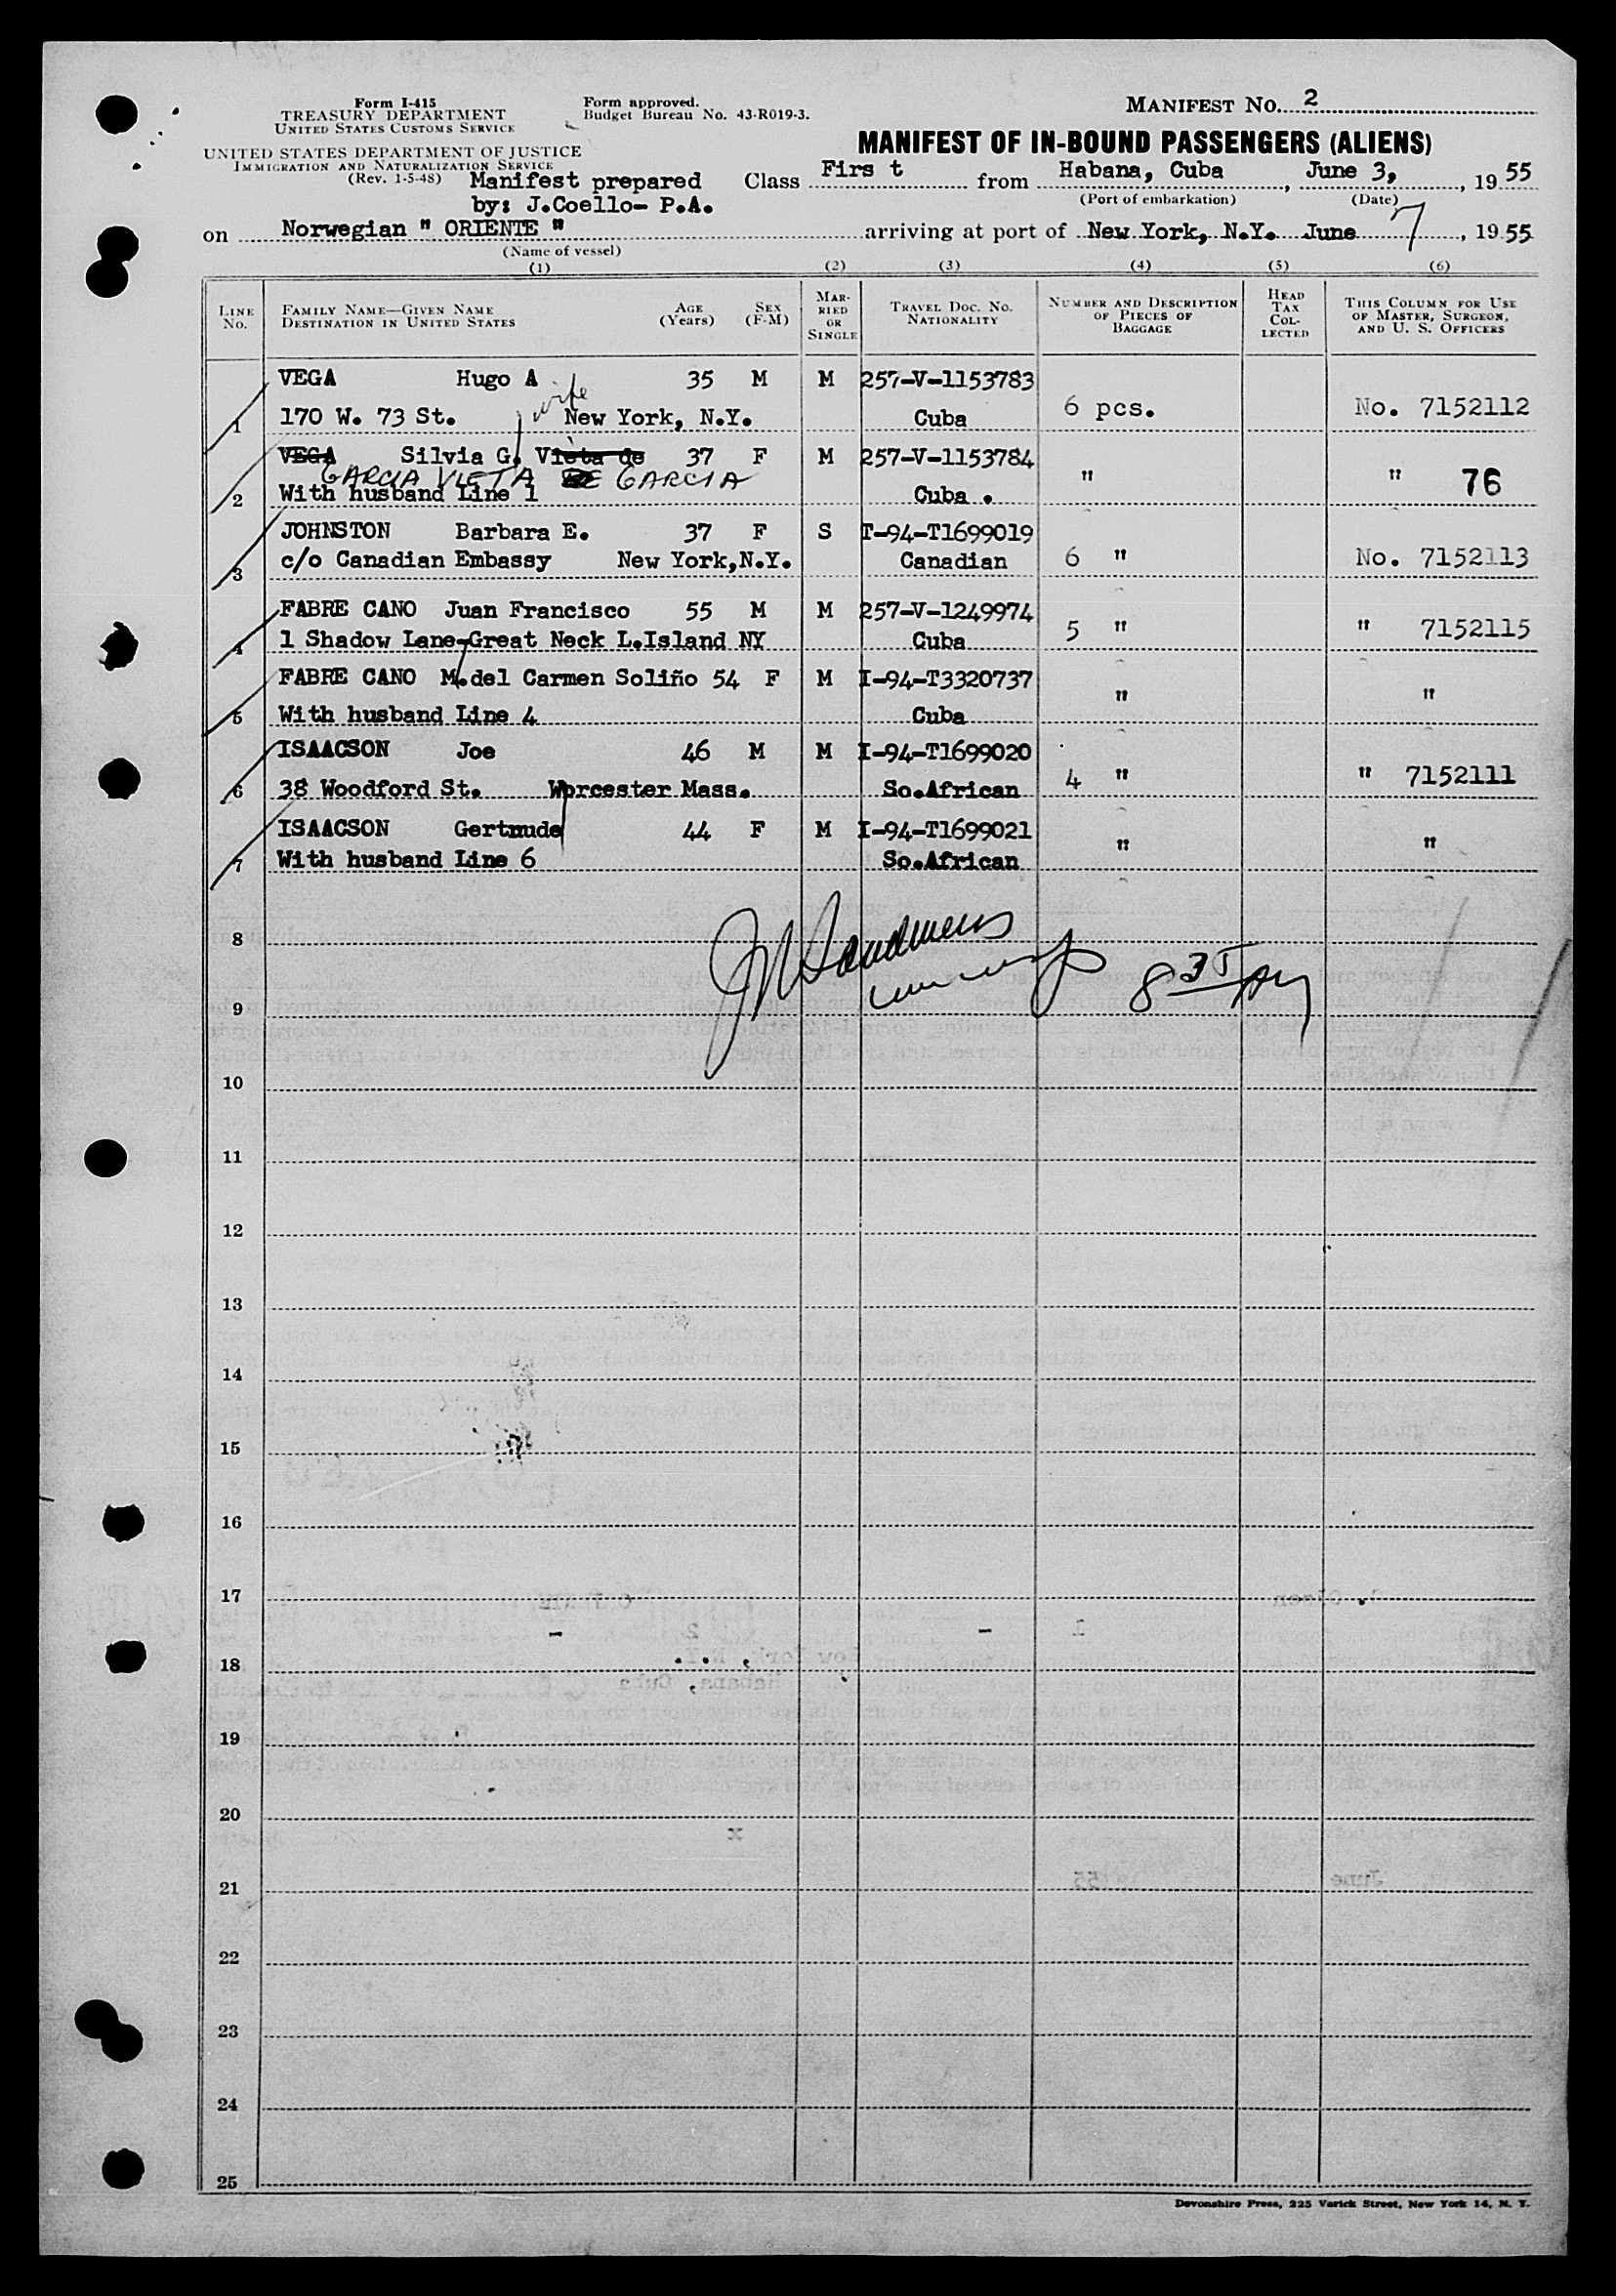 Form I-415
TREASURY DEPARTMENT
UNITED STATES CUSTOMS SERVICE
UNITED STATES DEPARTMENT OF JUSTICE
IMMIGRATION AND NATURALIZATION SERVICE
(Rev. 1-5-48)
Form approved.
Budget Bureau No. 43-R019-3.
MANIFEST No. 2
MANIFEST OF IN-BOUND PASSENGERS (ALIENS)
Manifest prepared
by: J.Coello- P.A.
Class Firs t from Habana, Cuba, June 3, , 19 55
(Port of embarkation) (Date)
on Norwegian " ORIENTE " arriving at port of New York, N.Y. June 7, 1955
(Name of vessel)
(1) (2) (3) (4) (5) (6)
LINE No. FAMILY NAME—GIVEN NAME DESTINATION IN UNITED STATES AGE (Years) SEX (F-M) MARRIED OR SINGLE TRAVEL DOC. NO. NATIONALITY NUMBER AND DESCRIPTION OF PIECES OF BAGGAGE HEAD TAX COLLECTED THIS COLUMN FOR USE OF MASTER, SURGEON, AND U. S. OFFICERS
VEGA Hugo A 35 M M 257-V-1153783
wife
1 170 W. 73 St. New York, N.Y. Cuba 6 pcs. No. 7152112
VEGA Silvia G. Vieta de 37 F M 257-V-1153784
GARCIA VIETA DE GARCIA
2 With husband Line 1 Cuba . " " 76
JOHNSTON Barbara E. 37 F S T-94-T1699019
3 c/o Canadian Embassy New York,N.Y. Canadian 6 " No. 7152113
FABRE CANO Juan Francisco 55 M M 257-V-1249974
4 1 Shadow Lane-Great Neck L.Island NY Cuba 5 " " 7152115
FABRE CANO M.del Carmen Soliño 54 F M I-94-T3320737
5 With husband Line 4 Cuba " "
ISAACSON Joe 46 M M I-94-T1699020
6 38 Woodford St. Worcester Mass. So.African 4 " " 7152111
ISAACSON Gertrude 44 F M I-94-T1699021
7 With husband Line 6 So.African " "
8
9
10
11
12
13
14
15
16
17
18
19
20
21
22
23
24
25
Devonshire Press, 225 Varick Street, New York 14, N. Y.